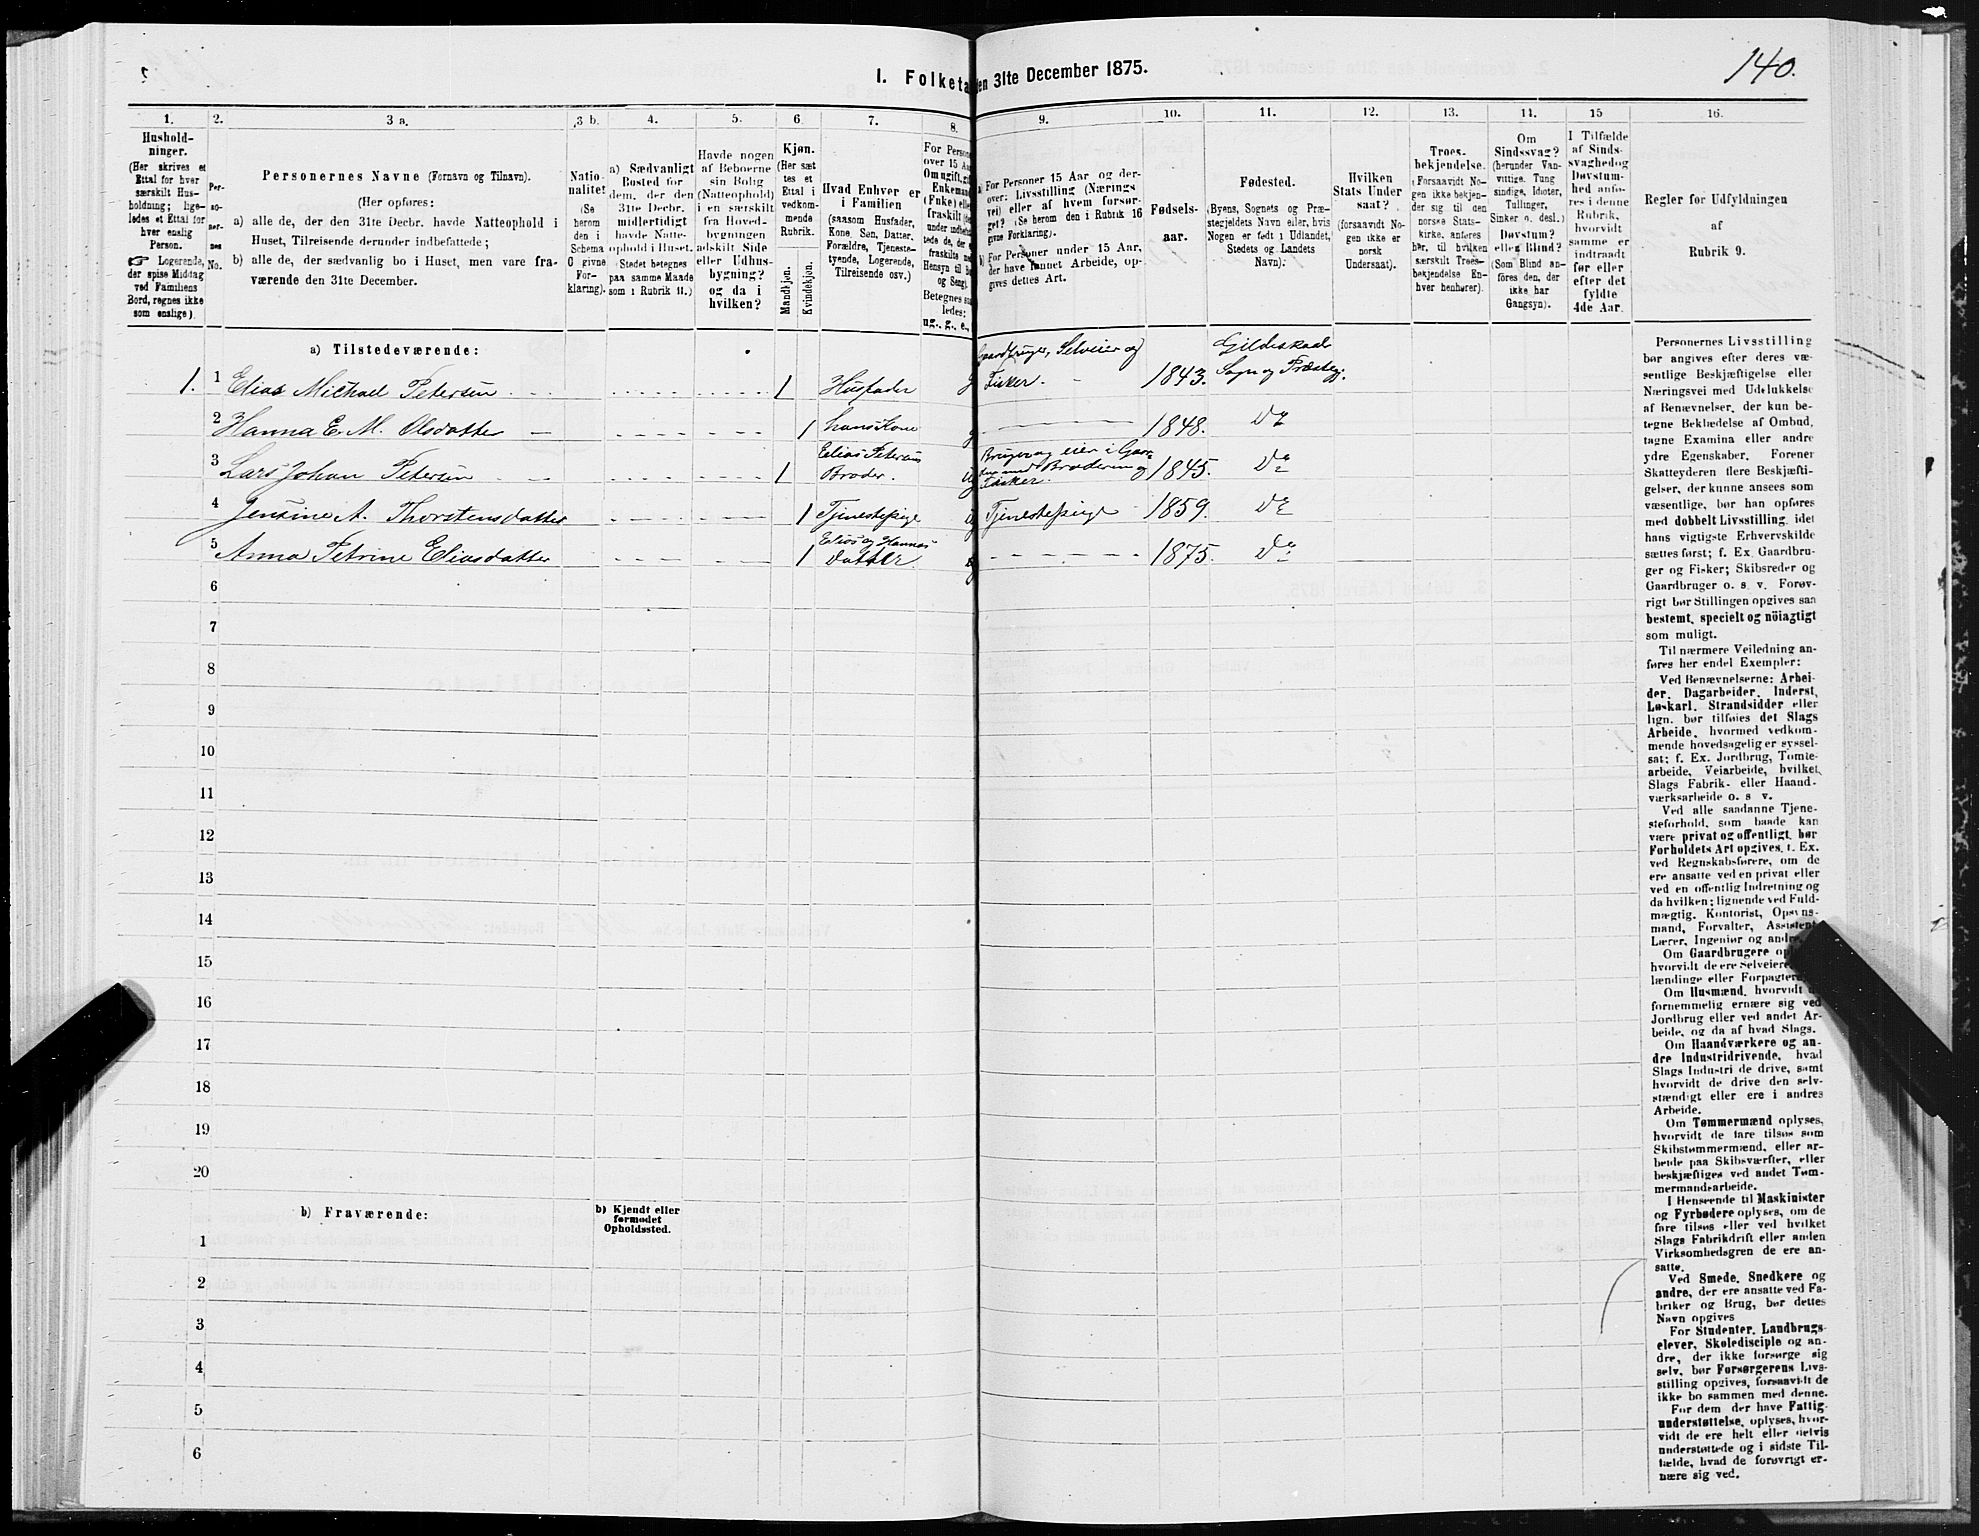 140.
I. Folketa
en 31te December 1875.
1.
2.
3 a.
3 b.
4.
5.
6.
7.
8.
9.
10.
11.
12.
13.
14.
15
16.
Hushold-
ninger.
(Her skrives et
Ettal for hver
særskilt Hus-
holdning; lige-
ledes et Ettal for
hver enslig
Person.
☞ Logerende,
der spise Middag
ved Familiens
Bord, regnes ikke
som enslige).
Per-
so-
ner-
nes
No.
Personernes Navne (Fornavn og Tilnavn).
(Her opføres:
a) alle de, der den 31te Decbr. havde Natteophold i
Huset, Tilreisende derunder indbefattede;
b) alle de, der sædvanlig bo i Huset, men vare fra-
værende den 31te December.
Natio-
nalitet
(Se
herom
den i
Schema
C givne
For-
klaring).
a) Sædvanligt
Bosted for
dem, der den
31te Decbr.
midlertidigt
havde Natte-
ophold i Huset.
(Stedet betegnes
paa samme Maade
som i Rubrik 11.)
Havde nogen
af Beboerne
sin Bolig
(Natteophold)
i en særskilt
fra Hoved-
bygningen
adskilt Side
eller Udhus-
bygning?
og da i
hvilken?
Kjøn.
(Her sæt
tes et
Ettal i
vedkom-
mende
Rubrik.
Mandkjøn.
Kvindekjøn.
Hvad Enhver er
i Familien
(saasom Husfader,
Kone, Søn, Datter,
Forældre, Tjeneste-
tyende, Logerende,
Tilreisende osv.)
For Perso
over 15 Aa
Om ugift, gi
Enkeman
(Fnke) elle
fraskilt
under indbefat
tede de, der
fraskilte m
Hensyn til B
og Seng).
Betegnes sa
ledes:
ug., g., e.,
a) For Personer 15 Aar og der-
over: Livsstilling (Nærings
vei) eller af hvem forsør-
get? (Se herom den i Rubrik 16
givne Forklaring).
b) For Personer under 15 Aar,
der have lønnet Arbeide, op-
gives dettes Art.
Fødsels-
aar.
Fødested.
(Byens, Sognets og Præ-
stegjeldets Navn eller, hvis
Nogen er født i Udlandet,
Stedets og Landets
Navn).
Hvilken
Stats Under
saat?
(forsaavidt No-
gen ikke er
norsk
Undersaat).
Troes-
bekjendelse.
(Forsaavidt No-
gen ikke bekjen-
der sig til den
norske Stats-
kirke, anføres
her, til hvilken
særskilt Troes-
bekjendelse En-
hver henhører).
Om
Sindssvag?
(herunder Van-
vittige, Tung
sindige, Idioter,
Tullinger,
Sinker o. desl.)
Døvstum?
eller Blind?
(Som Blind an-
føres den, der
ikke har
Gangsyn).
I Tilfælde
af Sinds-
svaghed og
Døvstum-
hed anfø-
res i denne
Rubrik,
hvorvidt
samme er
indtraadt
før eller
efter det
fyldte
4de Aar.
Regler for Udfyldningen
af
Rubrik 9.
a) Tilstedeværende:
1. 1 Elias Michael Petersen 1 Husfader g Gaardbruger, Selveier og Fisker. 1843. Gildeskaal Sogn og Præsteg:
2 Hanna E. M. Olsdatter 1 hans Kone g 1848. Do
3 Lars Johan Petersen 1 Elias Petersens Broder. ug Bruger og eier i Gaarden med Broderen og Fisker. 1845. Do
4 Jensine A. Thorstensdatter 1 Tjenestepige ug Tjenestepige 1859. Do
5 Anna Petrine Eliasdatter 1 Elias og Hannas Datter 1875. Do
6
7
8
9
10
11
12
13
14
15
16
17
18
19
20
b) Fraværende:
b) Kjendt eller
formodet
Opholdssted.
1
2
3
4
5
6
Personernes Livsstilling
bør angives efter deres væ-
sentlige Beskjæftigelse eller
Næringsvei med Udelukkelse
af Benævnelser, der kun be-
tegne Beklædelse af Ombud,
tagne Examina eller andre
ydre Egenskaber. Forener
Skatteyderen flere Beskjæfti-
gelser, der kunne ansees som
væsentlige, bør han opføres
med dobbelt Livsstilling, idet
hans vigtigste Erhvervskilde
sættes først; f. Ex. Gaardbru-
ger og Fisker; Skibsreder og
Gaardbruger o. s. v. Forøv-
rigt bør Stillingen opgives saa
bestemt, specielt og nöiagtigt
som muligt.
Til nærmere Veiledning an-
føres her endel Exempler:
Ved Benævnelserne: Arbei-
der, Dagarbeider, Inderst,
Løskarl, Strandsidder eller
lign. bør tilføies det Slags
Arbeide, hvormed vedkom-
mende hovedsagelig er syssel-
sat; f. Ex. Jordbrug, Tomte-
arbeide, Veiarbeide, hvilket
Slags Fabrik- eller Haand-
værksarbeide o. s v.
Ved alle saadanne Tjene-
steforhold, som baade kan
være privat og offentligt, bør
Forholdets Art opgives, f. Ex.
ved Regnskabsførere, om de
ere ansatte ved en privat eller
ved en offentlig Indretning og
da hvilken; lignende ved Fuld-
mægtig, Kontorist, Opsyns-
mand, Forvalter, Assistent,
Lærer, Ingeniør og andre
Om Gaardbrugere op
hvorvidt de ere Selveiere
lændinge eller Forpagtere
Om Husmænd, hvorvidt
fornemmelig ernære sig ved
Jordbrug eller ved andet Ar-
beide, og da af hvad Slags.
Om Haandværkere og an-
dre Industridrivende, hvad
Slags Industri de drive, samt
hvorvidt de drive den selv-
stændigt eller ere i andres
Arbeide.
Om Tømmermænd oplyses,
hvorvidt de fare tilsøs som
Skibstømmermænd, eller ar-
beide paa Skibsværfter, eller
beskjæftiges ved andet Tøm-
mermandsarbeide.
I Henseende til Maskinister
og Fyrbødere oplyses, om de
fare tilsøs eller ved hvilket
Slags Fabrikdrift eller anden
Virksomhedsgren de ere an-
satte.
Ved Smede, Snedkere og
andre, der ere ansatte ved Fa-
briker og Brug, bør dettes
Navn opgives
For Studenter, Landbrugs-
elever, Skoledisciple og an-
dre, der ikke forsørge sig
selv, bør Forsørgerens Livs-
stilling opgives, forsaavidt de
ikke bo sammen med denne.
For dem der have Fattig-
understøttelse, oplyses, hvor-
vidt de ere helt eller delvis
understøttede og i sidste Til-
fælde, hvad de forøvrigt er-
nære sig ved.